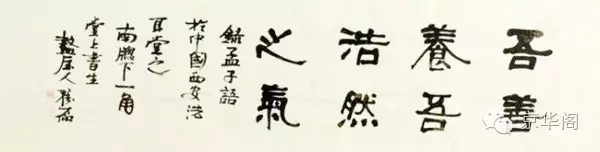 吾善
養吾
浩然
之氣
錄孟子語
於中國西安浩
耳堂之
南下一角
堂上書生
盩厔人
京华阁